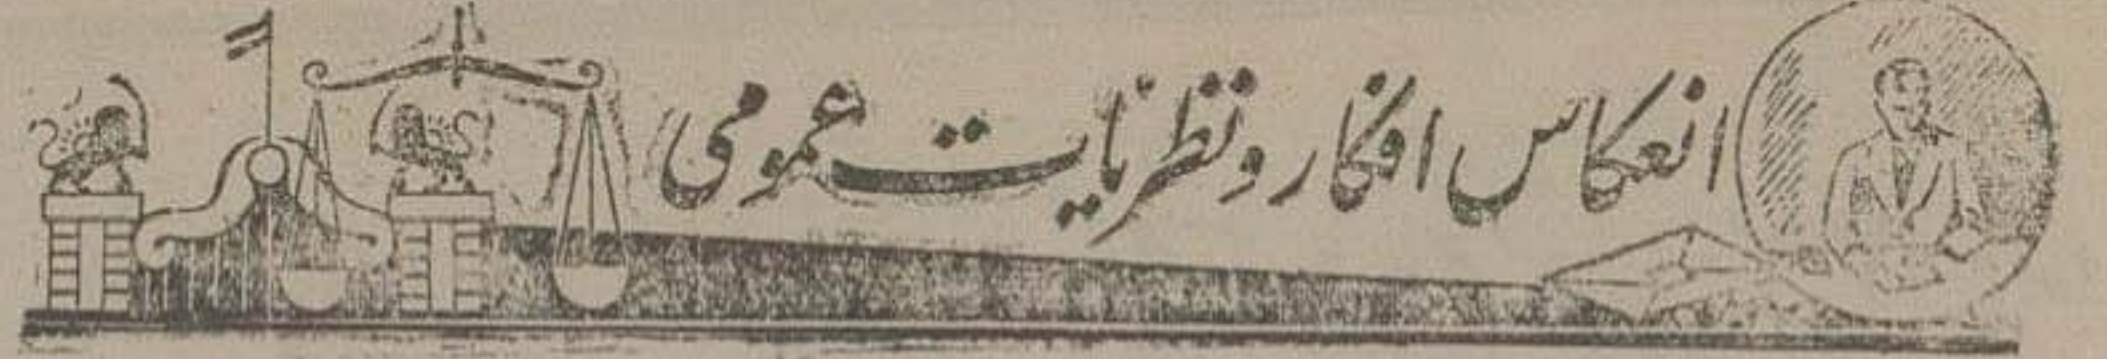 انعکاس افکار و نظریّات عمومی